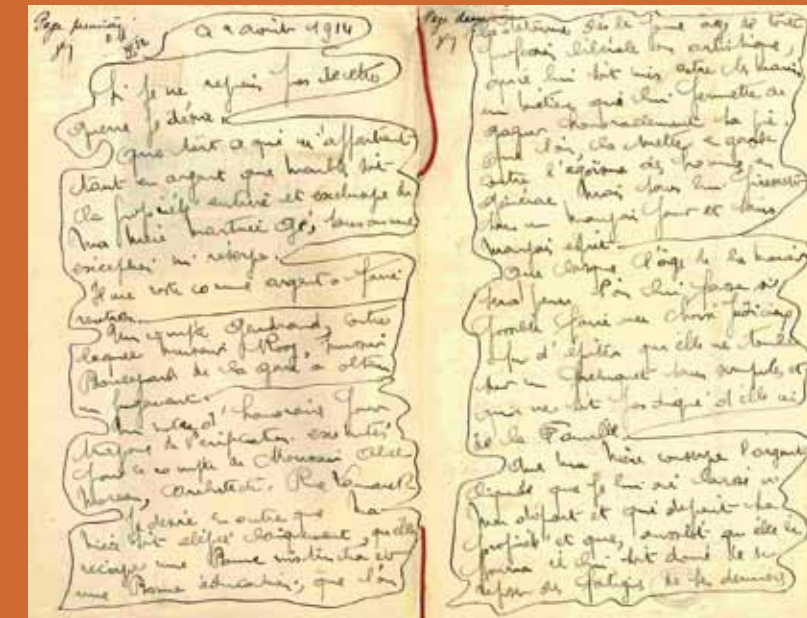 Page première
2 août 1914
Si je ne reviens pas de cette
guerre je désire.
Que tout ce qui m'appartient
tant en argent que meuble soit
la propriété entière et exclusive de
ma nièce Marthe sans aucune
exception ni réserve.
Il me reste comme argent à faire
rentrer.
Un compte contre
laquelle monsieur
Boulevard de la gare a obtenu
un jugement.
honoraires pour
travaux de vérification exécutés
pour le compte de Monsieur
Moreau, Architecte. Rue
Je désire en outre que ma
nièce soit élevée soigneusement, qu'elle
reçoive une Bonne instruction et
une Bonne éducation, que l'on
Page deux
la détourne dès le jeune âge de toute
profession libérale ou artistique,
qu'il lui soit mis entre les mains
un métier qui lui permette de
gagner honorablement sa vie.
Que l'on la mette en garde
contre l'égoïsme des hommes en
général mais sans lui
sous un mauvais jour et sans
mauvais esprit.
Que lorsque l'âge de la marier
sera venu l'on lui fasse si
possible faire un choix judicieux
afin d'éviter qu'elle ne tombe
sur un freluquet sans scrupules et
qui ne soit pas digne d'elle ni
de la Famille.
Que ma mère conserve l'argent
liquide que je lui ai laissé à
mon départ et qui devient sa
propriété et que, aussitôt qu'elle le
pourra il lui soit donné de se
reposer des fatigues de ses derniers